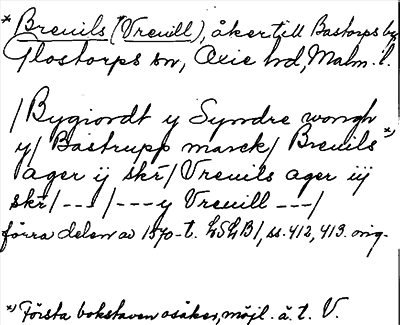 * Breuils (Vreuill), åker till Bastorps by,
Glostorps sn, Oxie hd, Malm. l.
/ Bygiordt y Syndre wongh
y / Bastrupp marck / Breuils *)
ager ij skr̄ / Vreuils ager iij
skr̄ / --- / --- y Vreuill --- /
förra delen av 1570-t. LSLB1, ss. 412, 413. orig.
*) Första bokstaven osäker, möjl. ä. t. V.